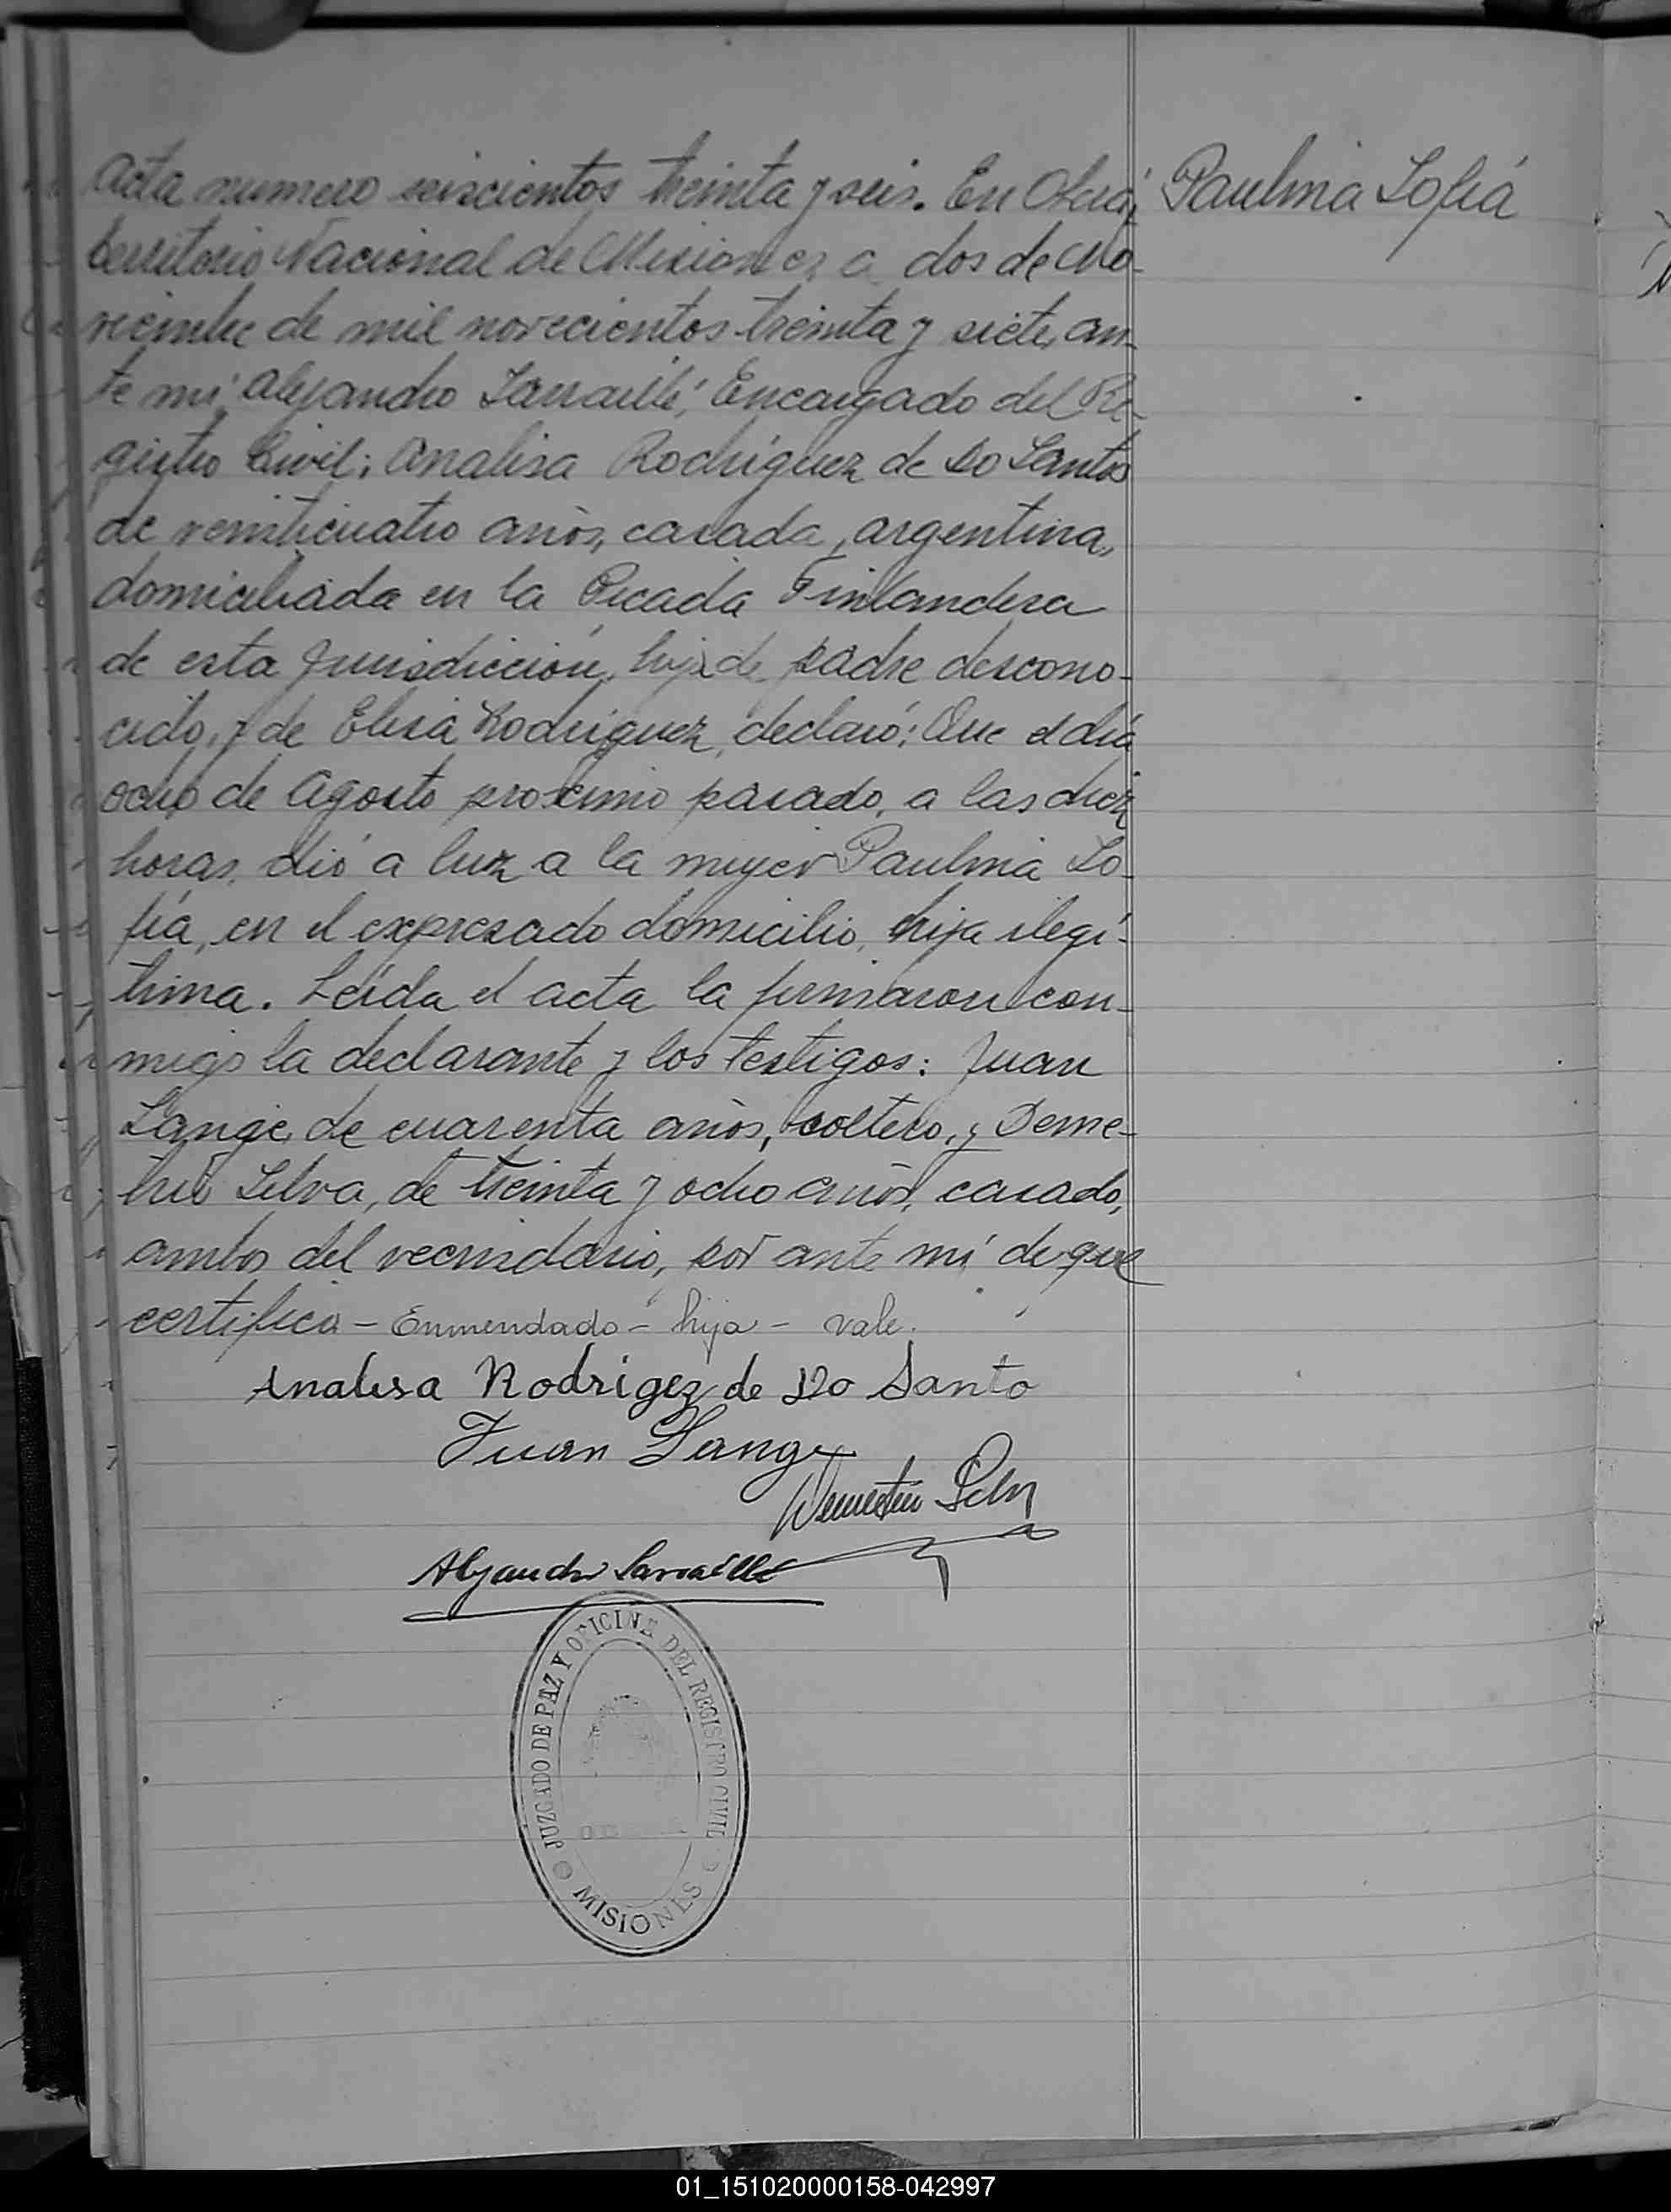 Acta numero seiscientos treinta y seis. En Oberá,
Paulina Sofía
territorio Nacional de Misiones a dos de No-
viembre de mil novecientos treinta y siete, an-
te mí, Alejandro Sarraillé, Encargado del Re-
gistro Civil; Analisa Rodriguez de Do Santos
de veinticuatro años, casada, argentina,
domiciliada en la Picada Finlandesa
de esta Jurisdicción, hija de padre descono-
cido, y de Elisa Rodriguez, declaró: Que el día
ocho de Agosto proximo pasado, a las diez
horas, dió a luz a la mujer Paulina So-
fía, en el expresado domicilio, hija ilegí-
tima. Leída el acta la firmaron con-
migo la declarante y los testigos: Juan
Lange, de cuarenta años, soltero, y Deme-
trio Silva, de treinta y ocho años, casado,
ambos del vecindario, por ante mí de que
certifico - Enmendado - hija - vale.
Analisa Rodrigez de Do Santo
Juan Lange
Demetrio
Alejandro Sarraillé
JUZGADO DE PAZ Y OFICINA DEL REGISTRO CIVIL
OBERA
MISIONES
01_151020000158-042997